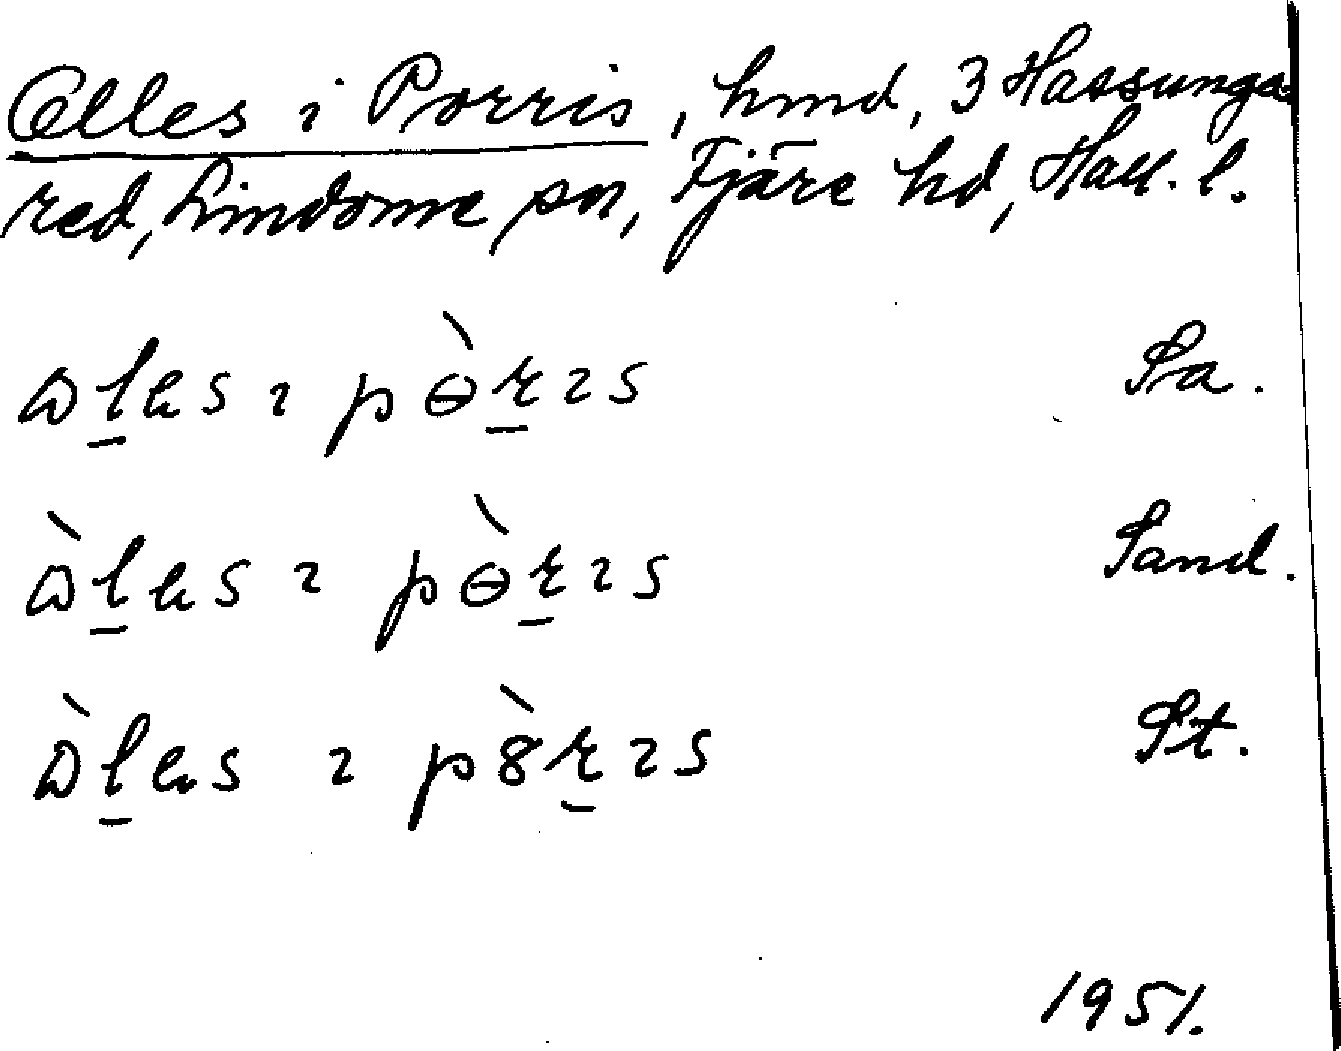 Olles i Porris, hmd, 3 Hassunga-
red, Lindome sn, Fjäre hd, Hall. l.
ɷl̠əs ɩ pɵ̀r̠ɩs Sa.
ɷ̀l̠əs ɩ pɵ̀r̠ɩs Sand.
ɷ̀l̠əs ɩ pȣ̀r̠ɩs St.
1951.